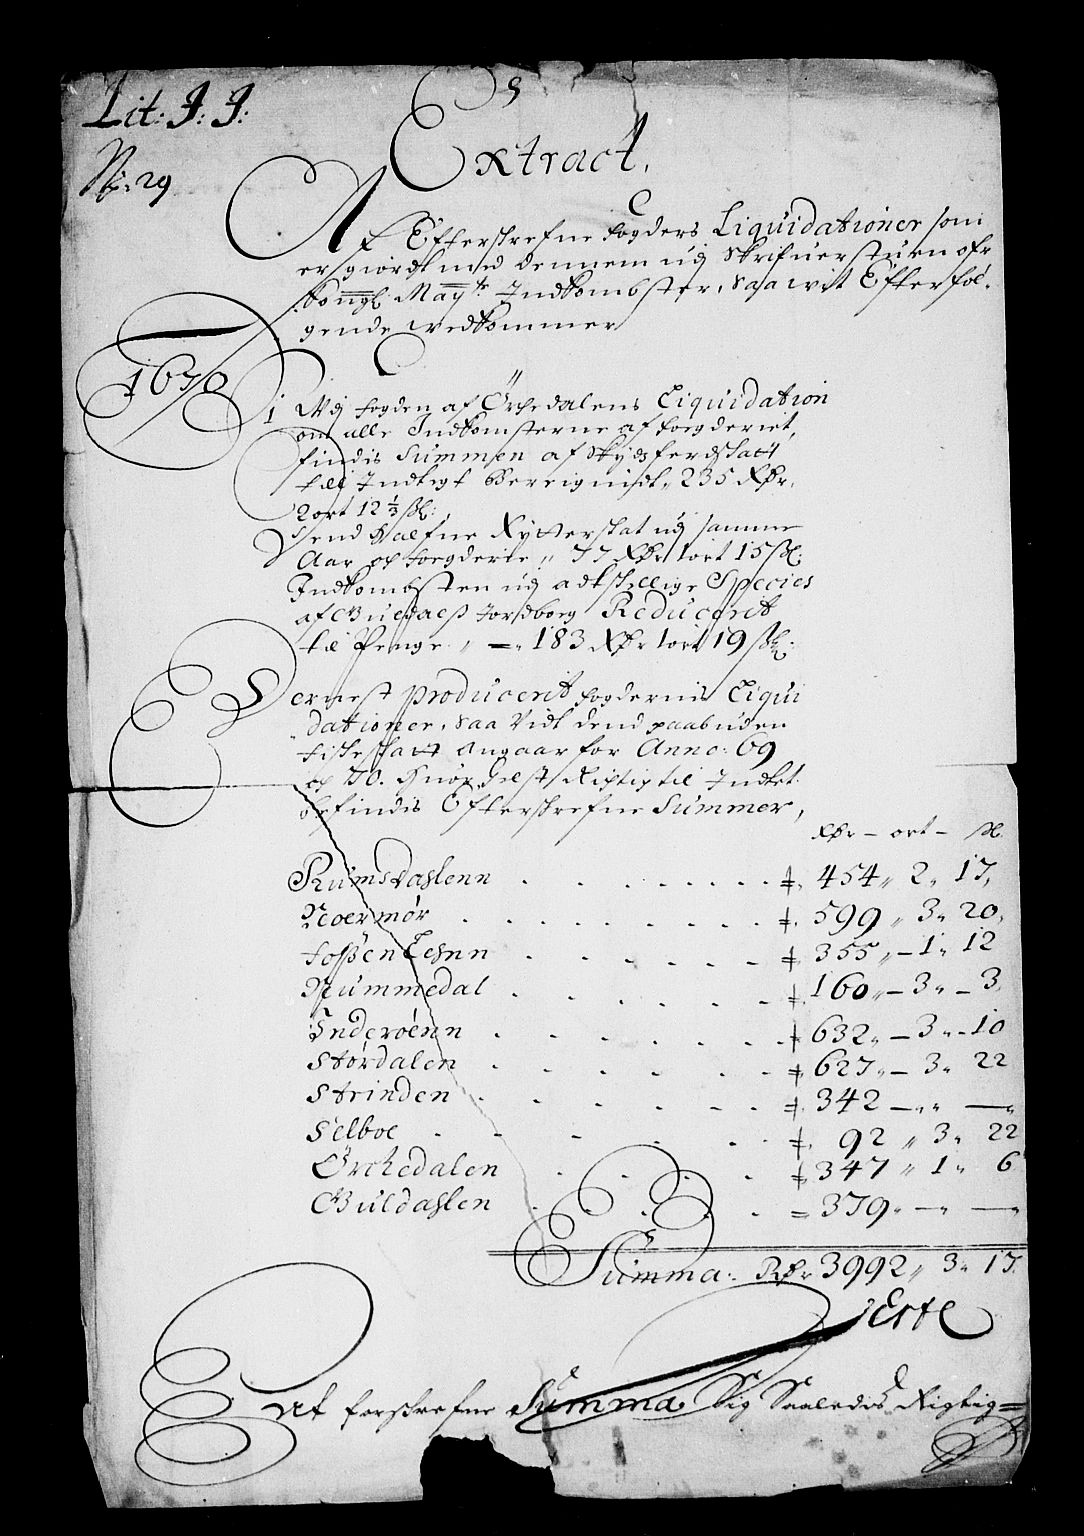 Lit: J: J:
N: 29
Extract,
Af Efterskrefne fogders Liquidationer som
er giordt med dennem udj Skrifuerstuen ofr
Kongl: May:tz Indkombster, saa wit Efterføl-
gende wedkommer
1670
i Wdj fogden af Örchedalens Liquidation
om alle Indkomsterne af foegderiet,
findis Summen af Skydsferdskatt
till Indtegt Beregnidt, 235 Rdr.
2 ort 12 ⅓ ss:
Dend halfue Rytterskat udj samme
Aar och foegderie ,, 77 Rdr 1 ort 15 ss:
Indkombsten udj adskillige Species
af Buedaels Jordboeg Reducerit
til Penge ,, =,, 183 Rdr 1 ort 19 ss:
Dernest Producerit fogdernis Liqui
dationer, saa vidt dend paabuden
fiskeskatt angaar for Anno: 69
och 70. huor Rigtig til Indtet
befindis Efterskrefne Summer,
Rdr - ort - ss
Rumsdahlenn . . . . . . . 454 ,, 2 ,, 17,
Noermør . . . . . . . 599 ,, 3 ,, 20,
Fossen Lehnn . . . . . . 355 ,, - 1 ,, 12
Nummedal . . . . . . 160 ,, - 3 ,, - 3,
Inderöenn . . . . . . 632 ,, - 3 ,, - 10
Størdalen . . . . . . 627 ,, - 3 ,, 22
Strinden . . . . . . 342 - ,, ,, —
Selboe . . . . . . 92 ,, 3 ,, 22
Örchedalen . . . . 347 ,, 1 ,, 6
Guldahlen . . . . = 379 ,, — ,, —
Summa: Rdr 3992 ,, 3 ,, 17.
Af forskrefne Summa Sig Saaledis Rigtig=